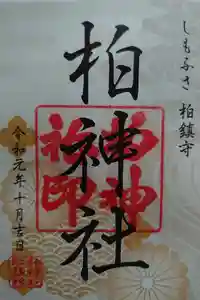 しもふさ 柏鎮守
柏神社
令和元年十月吉日